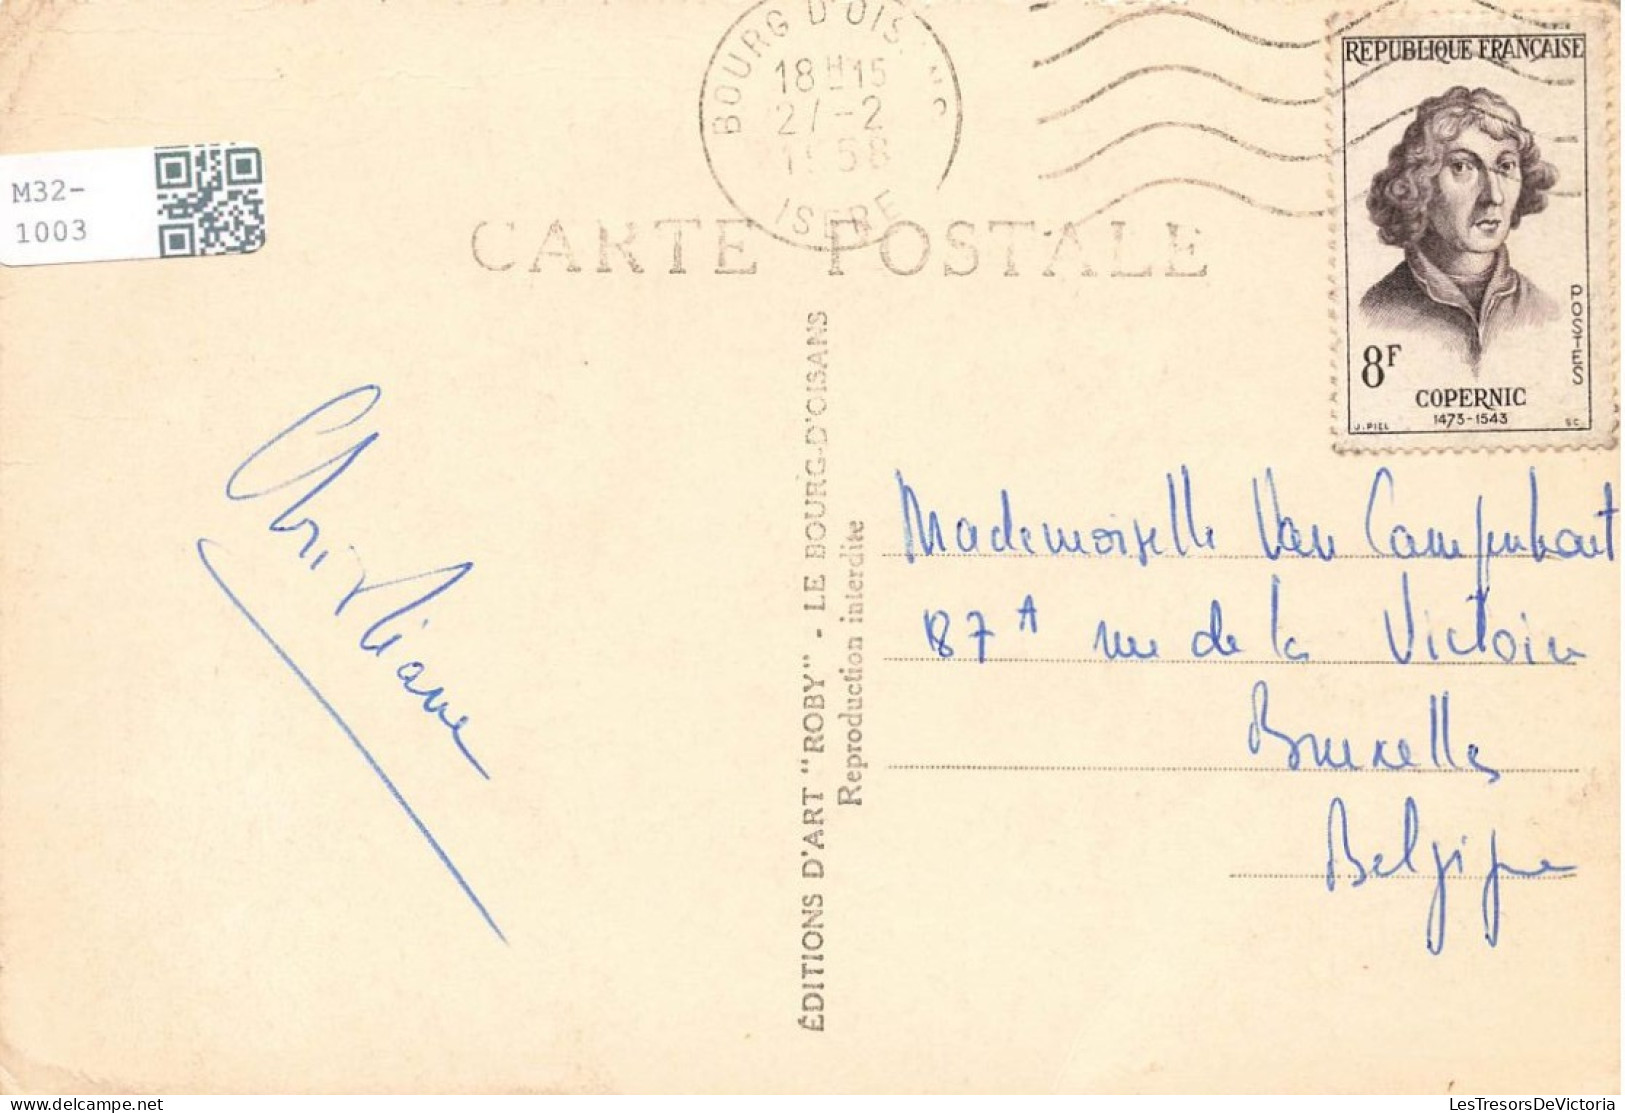 BOURG D'OISANS
18H15
27-2
1958
ISERE
REPUBLIQUE FRANÇAISE
POSTES
8F
COPERNIC
1473-1543
J. PIEL SC.
M32-
1003
CARTE POSTALE
ÉDITIONS D'ART "ROBY" - LE BOURG-D'OISANS
Reproduction interdite
Christiane
Mademoiselle Van Campenhout
87A rue de la Victoire
Bruxelles
Belgique
delcampe.net
LesTresorsDeVictoria